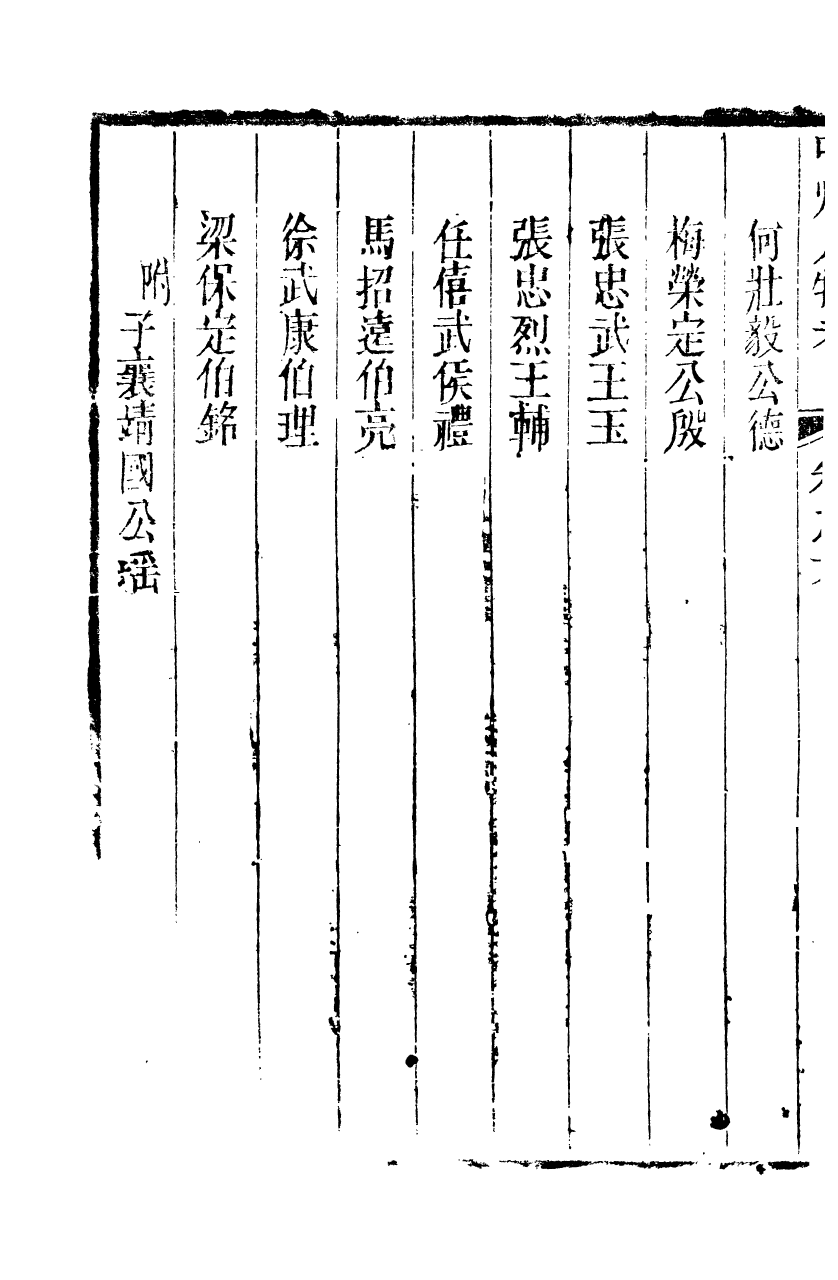 何壯毅公德
梅榮定公殷
張忠武王玉
張忠烈王輔
任僖武侯禮
馬招遠伯亮
徐武康伯理
梁保定伯銘
附子襄靖國公瑶